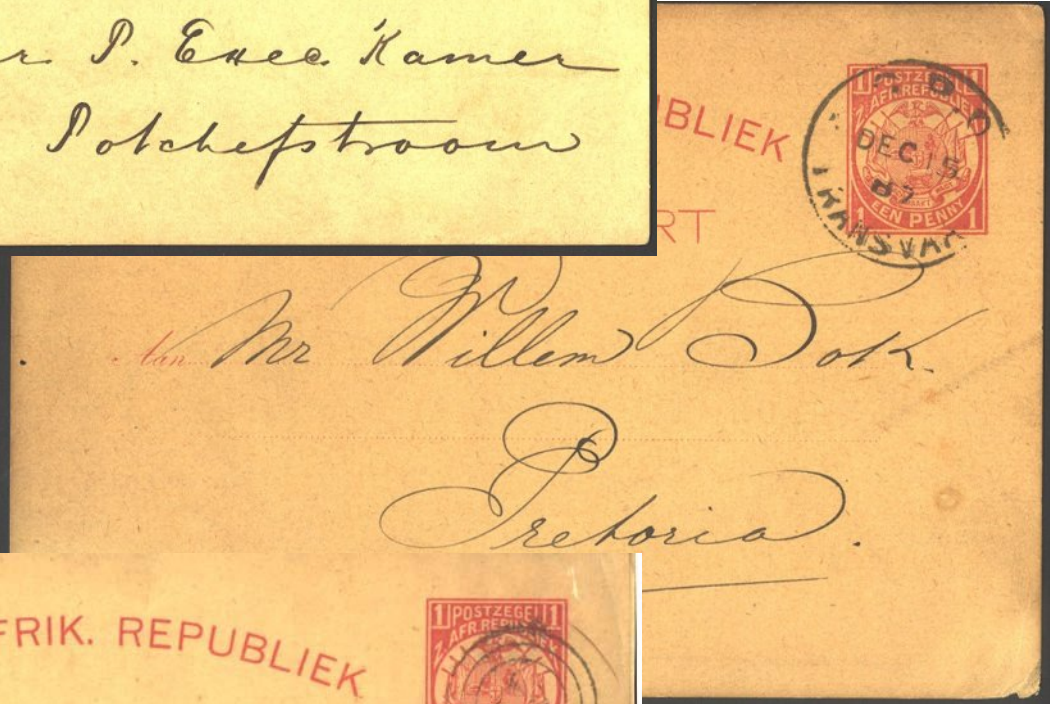 r P. Exec. Kamer
Potchefstroom
UBLIEK
RT
1 POSTZEGEL 1
Z. AFR. REPUBLIEK
EEN PENNY
1 1
T.P.O
DEC 15
87
TRANSVAA
Aan Mr Willem Bok.
Pretoria.
FRIK. REPUBLIEK
1 POSTZEGEL 1
Z. AFR. REPUBLIEK